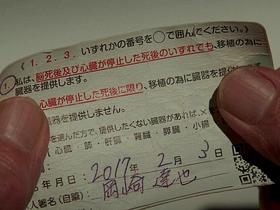 《1. 2. 3. いずれかの番号を○で囲んでください。》
1 私は、脳死後及び心臓が停止した死後のいずれでも、移植の為に
臓器を提供します。
心臓が停止した死後に限り、移植の為に臓器を提供
提供しません。
を選んだ方で、提供したくない臓器があれば、×
心臓・肺・肝臓・腎臓・膵臓・小腸
年月日: 2017年 2月 3日
署名(自筆)